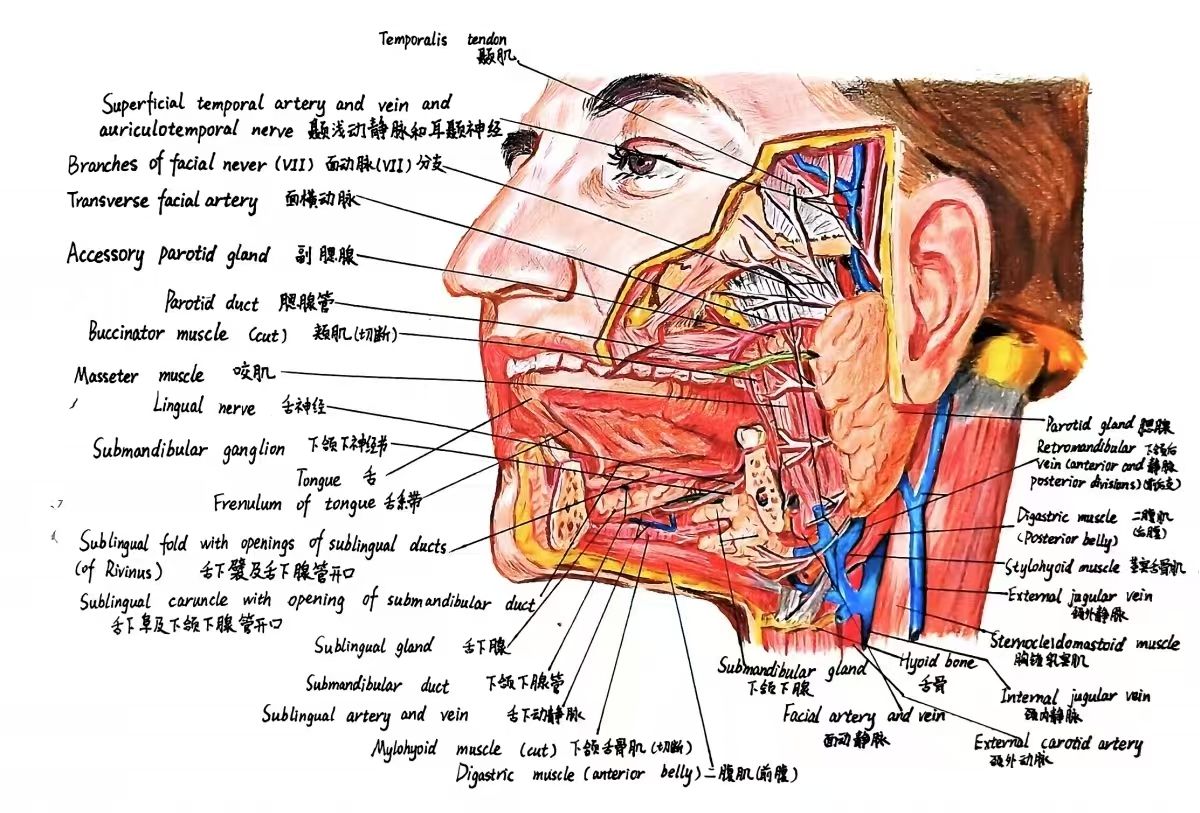 Temporalis tendon
颞肌
Superficial temporal artery and vein and
auriculotemporal nerve 颞浅动静脉和耳颞神经
Branches of facial never (VII) 面动脉(VII)分支
Transverse facial artery 面横动脉
Accessory parotid gland 副腮腺
Parotid duct 腮腺管
Buccinator muscle (cut) 颊肌(切断)
Masseter muscle 咬肌
Lingual nerve 舌神经
Submandibular ganglion 下颌下神经节
Tongue 舌
Frenulum of tongue 舌系带
Sublingual fold with openings of sublingual ducts
(of Rivinus) 舌下襞及舌下腺管开口
Sublingual caruncle with opening of submandibular duct
舌下阜及下颌下腺管开口
Sublingual gland 舌下腺
Submandibular duct 下颌下腺管
Sublingual artery and vein 舌下动静脉
Mylohyoid muscle (cut) 下颌舌骨肌(切断)
Digastric muscle (anterior belly) 二腹肌(前腹)
Parotid gland 腮腺
Retromandibular 下颌后
vein (anterior and 静脉
posterior divisions) (前后支)
Digastric muscle 二腹肌
(Posterior belly) (后腹)
Stylohyoid muscle 茎突舌骨肌
External jugular vein
颈外静脉
Sternocleidomastoid muscle
胸锁乳突肌
Submandibular gland
下颌下腺
Hyoid bone
舌骨
Internal jugular vein
颈内静脉
Facial artery and vein
面动静脉
External carotid artery
颈外动脉